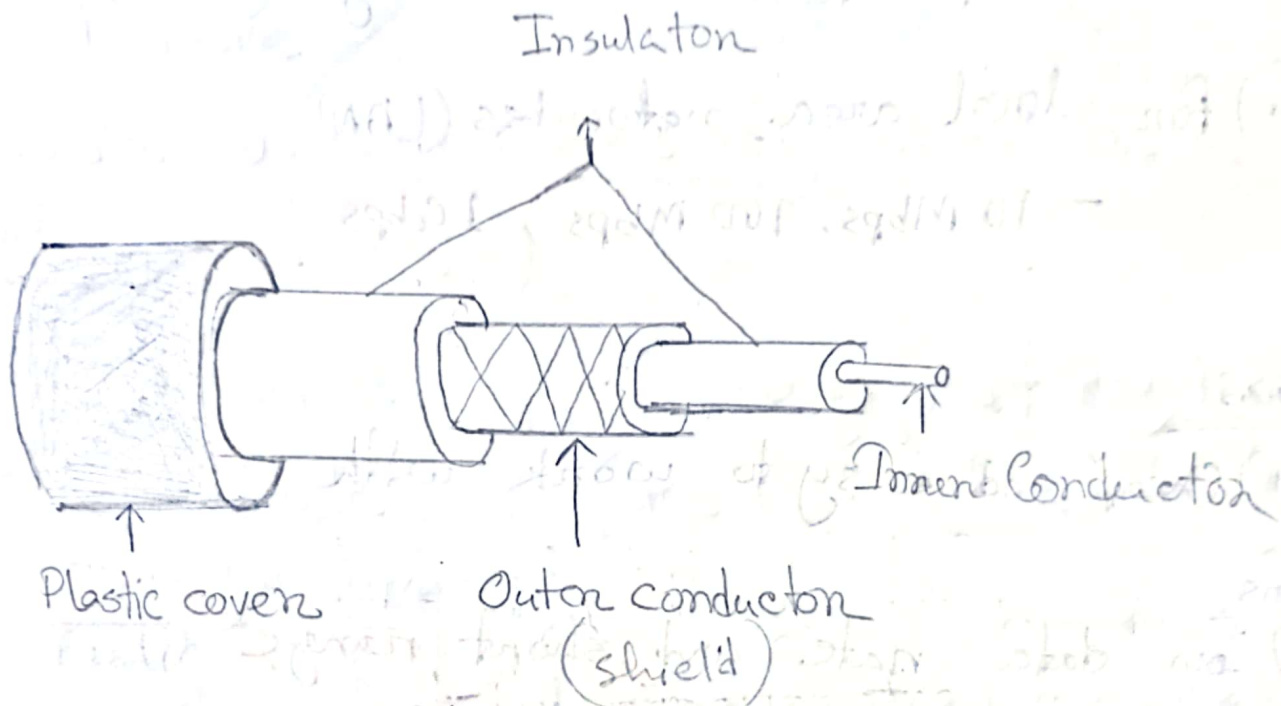 Insulator
Inner Conductor
Plastic cover
Outer conductor
(shield)